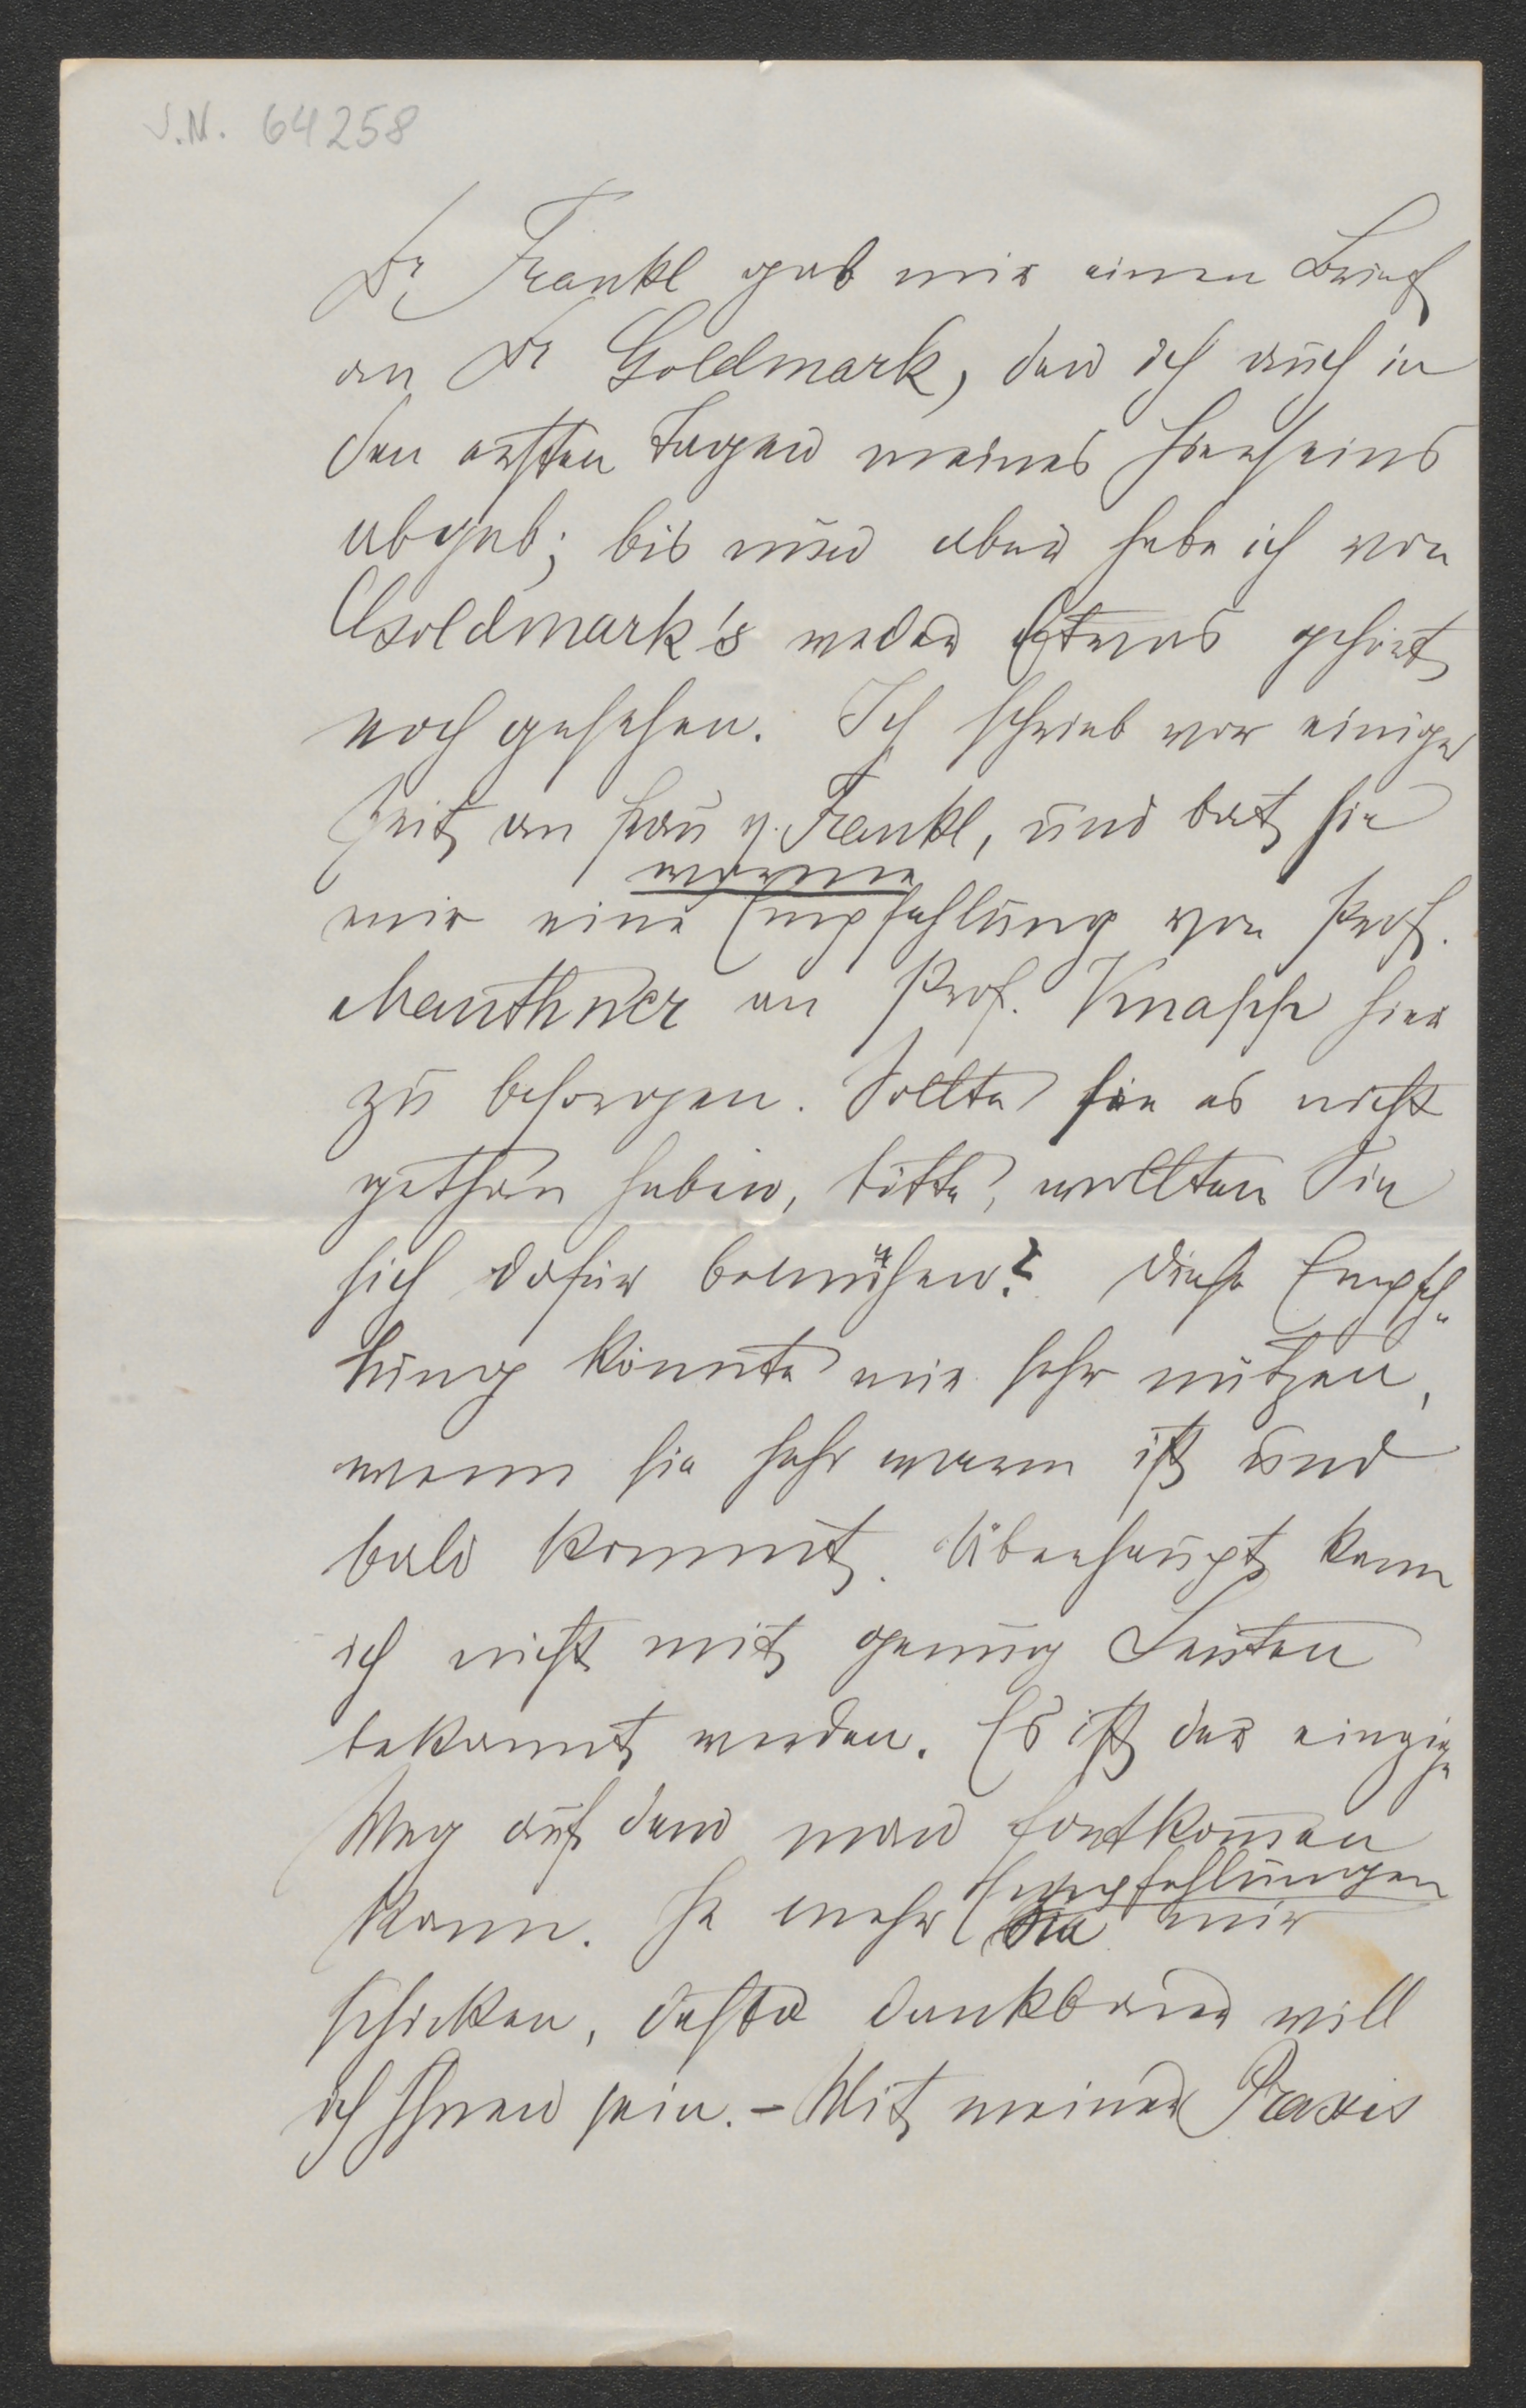 J.N. 64258
Dr Frankl gab mir einen Brief
an Dr Goldmark, den ich auch in
den ersten Tagen meines Hierseins
abgab; bis nun aber habe ich von
Goldmark's weder Etwas gehört
noch gesehen. Ich schrieb vor einiger
Zeit an Frau v. Frankl, und bat sie
warme
mir eine Empfehlung von Prof.
Mauthner an Prof. Knapp hier
zu besorgen. Sollte sie es nicht
gethan haben, bitte, wollten Sie
sich dafür bemühen? Diese Empfeh-
lung könnte mir sehr nützen,
wenn sie sehr warm ist und
bald kommt. Überhaupt kann
ich nicht mit genug Leuten
bekannt werden. Es ist der einzige
Weg auf dem man fortkomen
kann. Je mehr Empfehlungen
Sie mir
schicken, desto dankbarer will
ich Ihnen sein. – Mit meiner Praxis